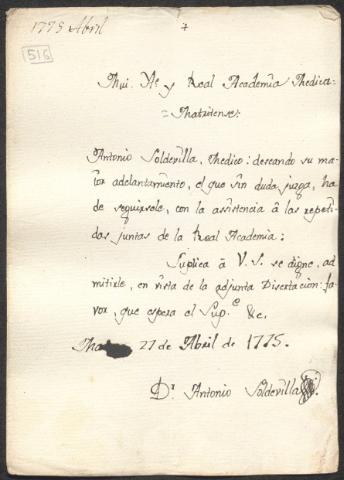 1775 Abril
7
516
Mui Ile. y Real Academia Medica=
=Matritense:
Antonio Soldevilla, Medico: deseando su ma=
ior adelantamiento, el que sin duda juzga, ha
de seguirsele, con la assistencia â las repeti=
das juntas de la Real Academia:
Suplica â V. S. se digne, ad
mitirle, en vista de la adjunta Disertacion: fa=
vor, que espera el Sup.e &c.
27 de Abril de 1775.
Dr Antonio Soldevilla.